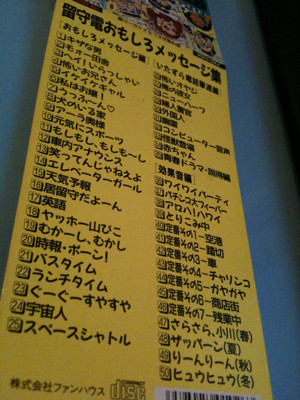 留守電おもしろメッセージ集
[おもしろメッセージ編]
1 キザな男
2 モォー田舎
3 ヘイ!いらっしゃい
4 怖いお兄さん
5 イケイケギャル
6 私はお嬢!
7 うっふ〜ん♡
8 犬のいる家
9 アーラ奥様
10 元気にスポーツ
11 もしもし、もしも〜し
12 車内アナウンス
13 笑ってんじゃねぇよ
14 エレベーターガール
15 天気予報
16 居留守だよーん
17 英語
18 ヤッホー山びこ
19 むかーし、むかし
20 時報・ポーン!
21 バスタイム
22 ランチタイム
23 ぐーぐーすやすや
24 宇宙人
25 スペースシャトル
[いたずら電話撃退編]
怖いオヤジ
俺の彼女
ニューハーフ
婦人警官
外国人
幽霊
コンピューター音声
怪獣登場
赤ちゃん
青春ドラマ・説得編
[効果音編]
ワイワイパーティ
パチンコ大フィーバー
アロハ!ハワイ
とりこみ中
40 定番その1-空港
41 定番その2-踏切
42 定番その3-車
43 定番その4-チャリンコ
44 定番その5-ガヤガヤ
45 定番その6-商店街
46 定番その7-残業中
47 さらさら、小川(春)
48 ザッパーン(夏)
49 りーんりーん(秋)
50 ヒュウヒュウ(冬)
株式会社ファンハウス
COMPACT
disc